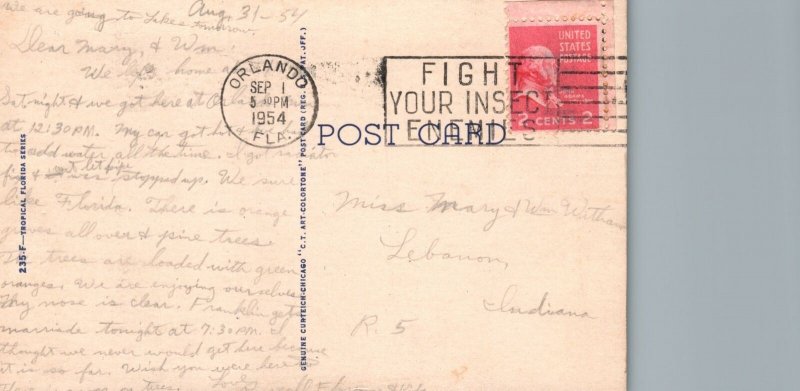 we are going to Lakes tomorrow.
Aug. 31-54
Dear Mary, & Wm:
We left home
Sat night & we got here at
at 12:30 P.M. My car got hot &
to add water all the time. I got
fixed & was stopped up. We sure
like Florida. There is orange
groves all over & pine trees.
The trees are loaded with green
oranges. We are enjoying ourselves.
My nose is clear. Franklin gets
married tonight at 7:30 P.M. I
thought we never would get here because
it is so far. Wish you were here
Love
235-F—TROPICAL FLORIDA SERIES
GENUINE CURTEICH-CHICAGO "C.T. ART-COLORTONE" POST CARD (REG. U.S. PAT. OFF.)
ORLANDO
SEP 1
5 30 PM
1954
FLA.
FIGHT
YOUR INSECT
ENEMIES
UNITED
STATES
POSTAGE
2 CENTS 2
POST CARD
Miss Mary & Wm Witham
Lebanon,
Indiana
R. 5